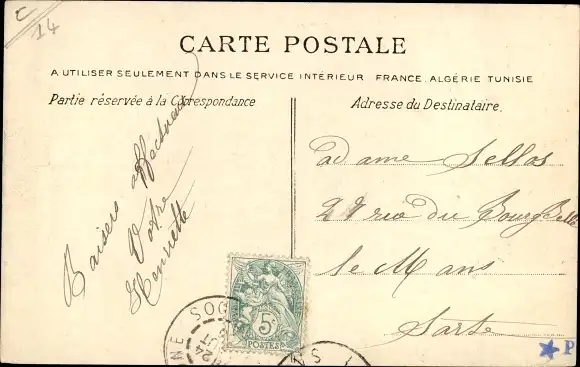 C
14
CARTE POSTALE
A UTILISER SEULEMENT DANS LE SERVICE INTÉRIEUR FRANCE. ALGÉRIE TUNISIE
Partie réservée à la Correspondance
Adresse du Destinataire.
Baisers affectueux
Votre
Henriette
adame Sellos
27 rue du Bourg Belé
Le Mans
Sarte
5c
POSTES
SOG
NE
24
P